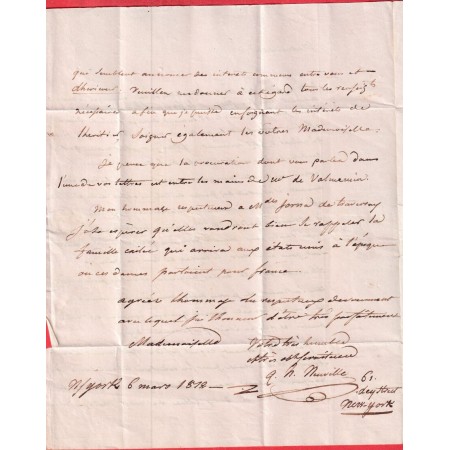 qui semblent annoncer des interet communs entre vous et
dhermer. Veuillez me donner a cet egard tous les renseigts
necessaires afin que je puisse en soignant les interets de
lheritier soigner egalement les votres Mademoiselle.
Je pense que la procuration dont vous parlez dans
l'une de vos lettres est entre les mains de Mr de Valmenier
Mon hommage respectueux a Mdes
j'ose esperer qu'elles voudront bien se rappeler la
famille qui arriva aux etats unis à l'epoque
où ces dames partoient pour france.
agréez lhommage du respectueux devouement
avec lequel j'ai lhonneur d'etre tres parfaitement
Mademoiselle Votre très humble
et très obeissant serviteur
G. N. Neuville
N/york 6 mars 1818 61.
Dey Street
New-york